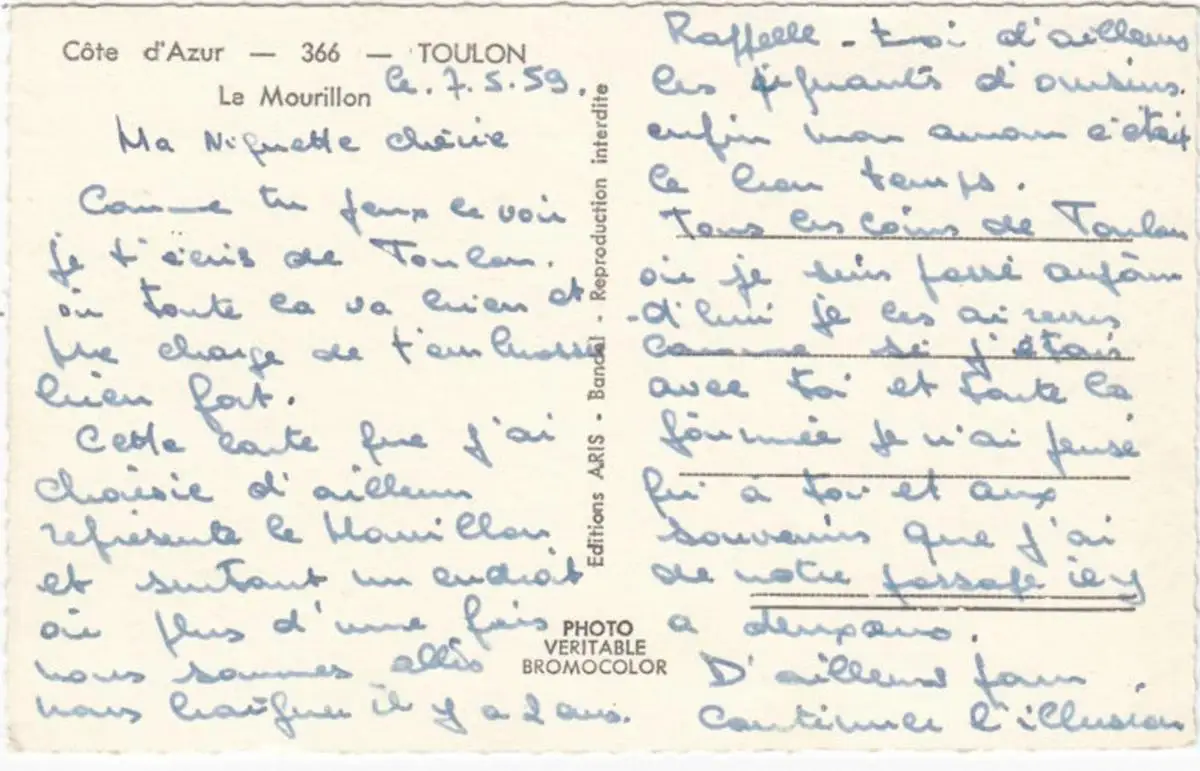 Côte d'Azur — 366 — TOULON
Le Mourillon
le. 7.5.59.
Ma Niquette chérie
Comme tu peux le voir
je t'écris de Toulon.
où toute la va bien et
me charge de t'embrasser
bien fort.
Cette carte que j'ai
choisie d'ailleurs
représente le Mourillon
et surtout un endroit
où plus d'une fois
nous sommes allés
nous baigner il y a 2 ans.
Editions ARIS - Bandol - Reproduction interdite
PHOTO
VERITABLE
BROMOCOLOR
Rappelle-toi d'ailleurs
les piquants d'oursins.
enfin mon amour c'était
le bon temps.
Tous les coins de Toulon
où je suis passé aujour
-d'hui je les ai revus
comme si j'étais
avec toi et toute la
journée je n'ai pensé
qu'à toi et aux
souvenirs que j'ai
de notre passage il y
a deux ans.
D'ailleurs pour
continuer l'illusion